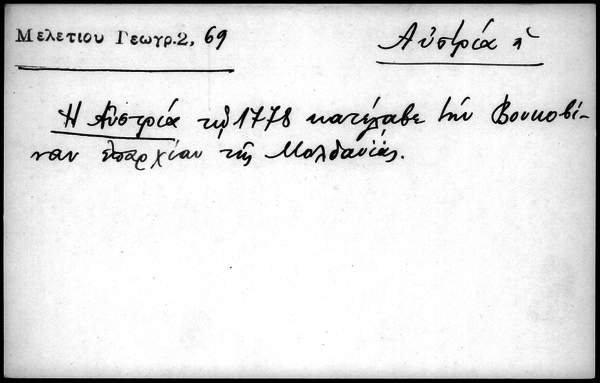 Μελετίου Γεωγρ. 2, 69
Αὐστρία ἡ
Ἡ Αὐστρία τῷ 1778 κατέλαβε τὴν Βουκοβί-
ναν ἐπαρχίαν τῆς Μολδαυίας.